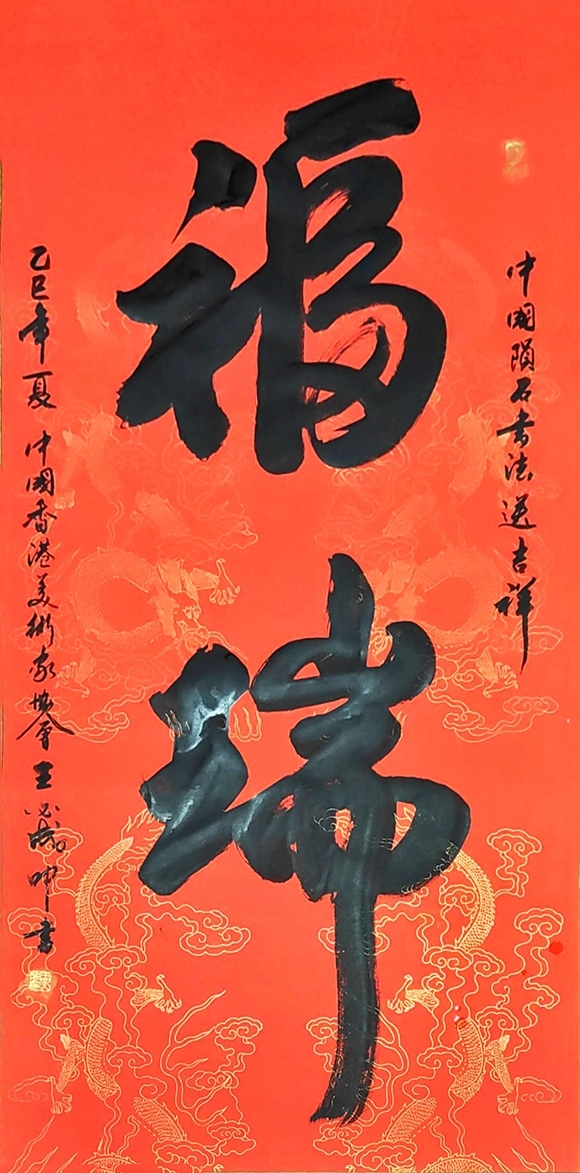 中國隕石書法送吉祥
福瑞
乙巳年夏 中國香港美術家協會 王必成 坤書